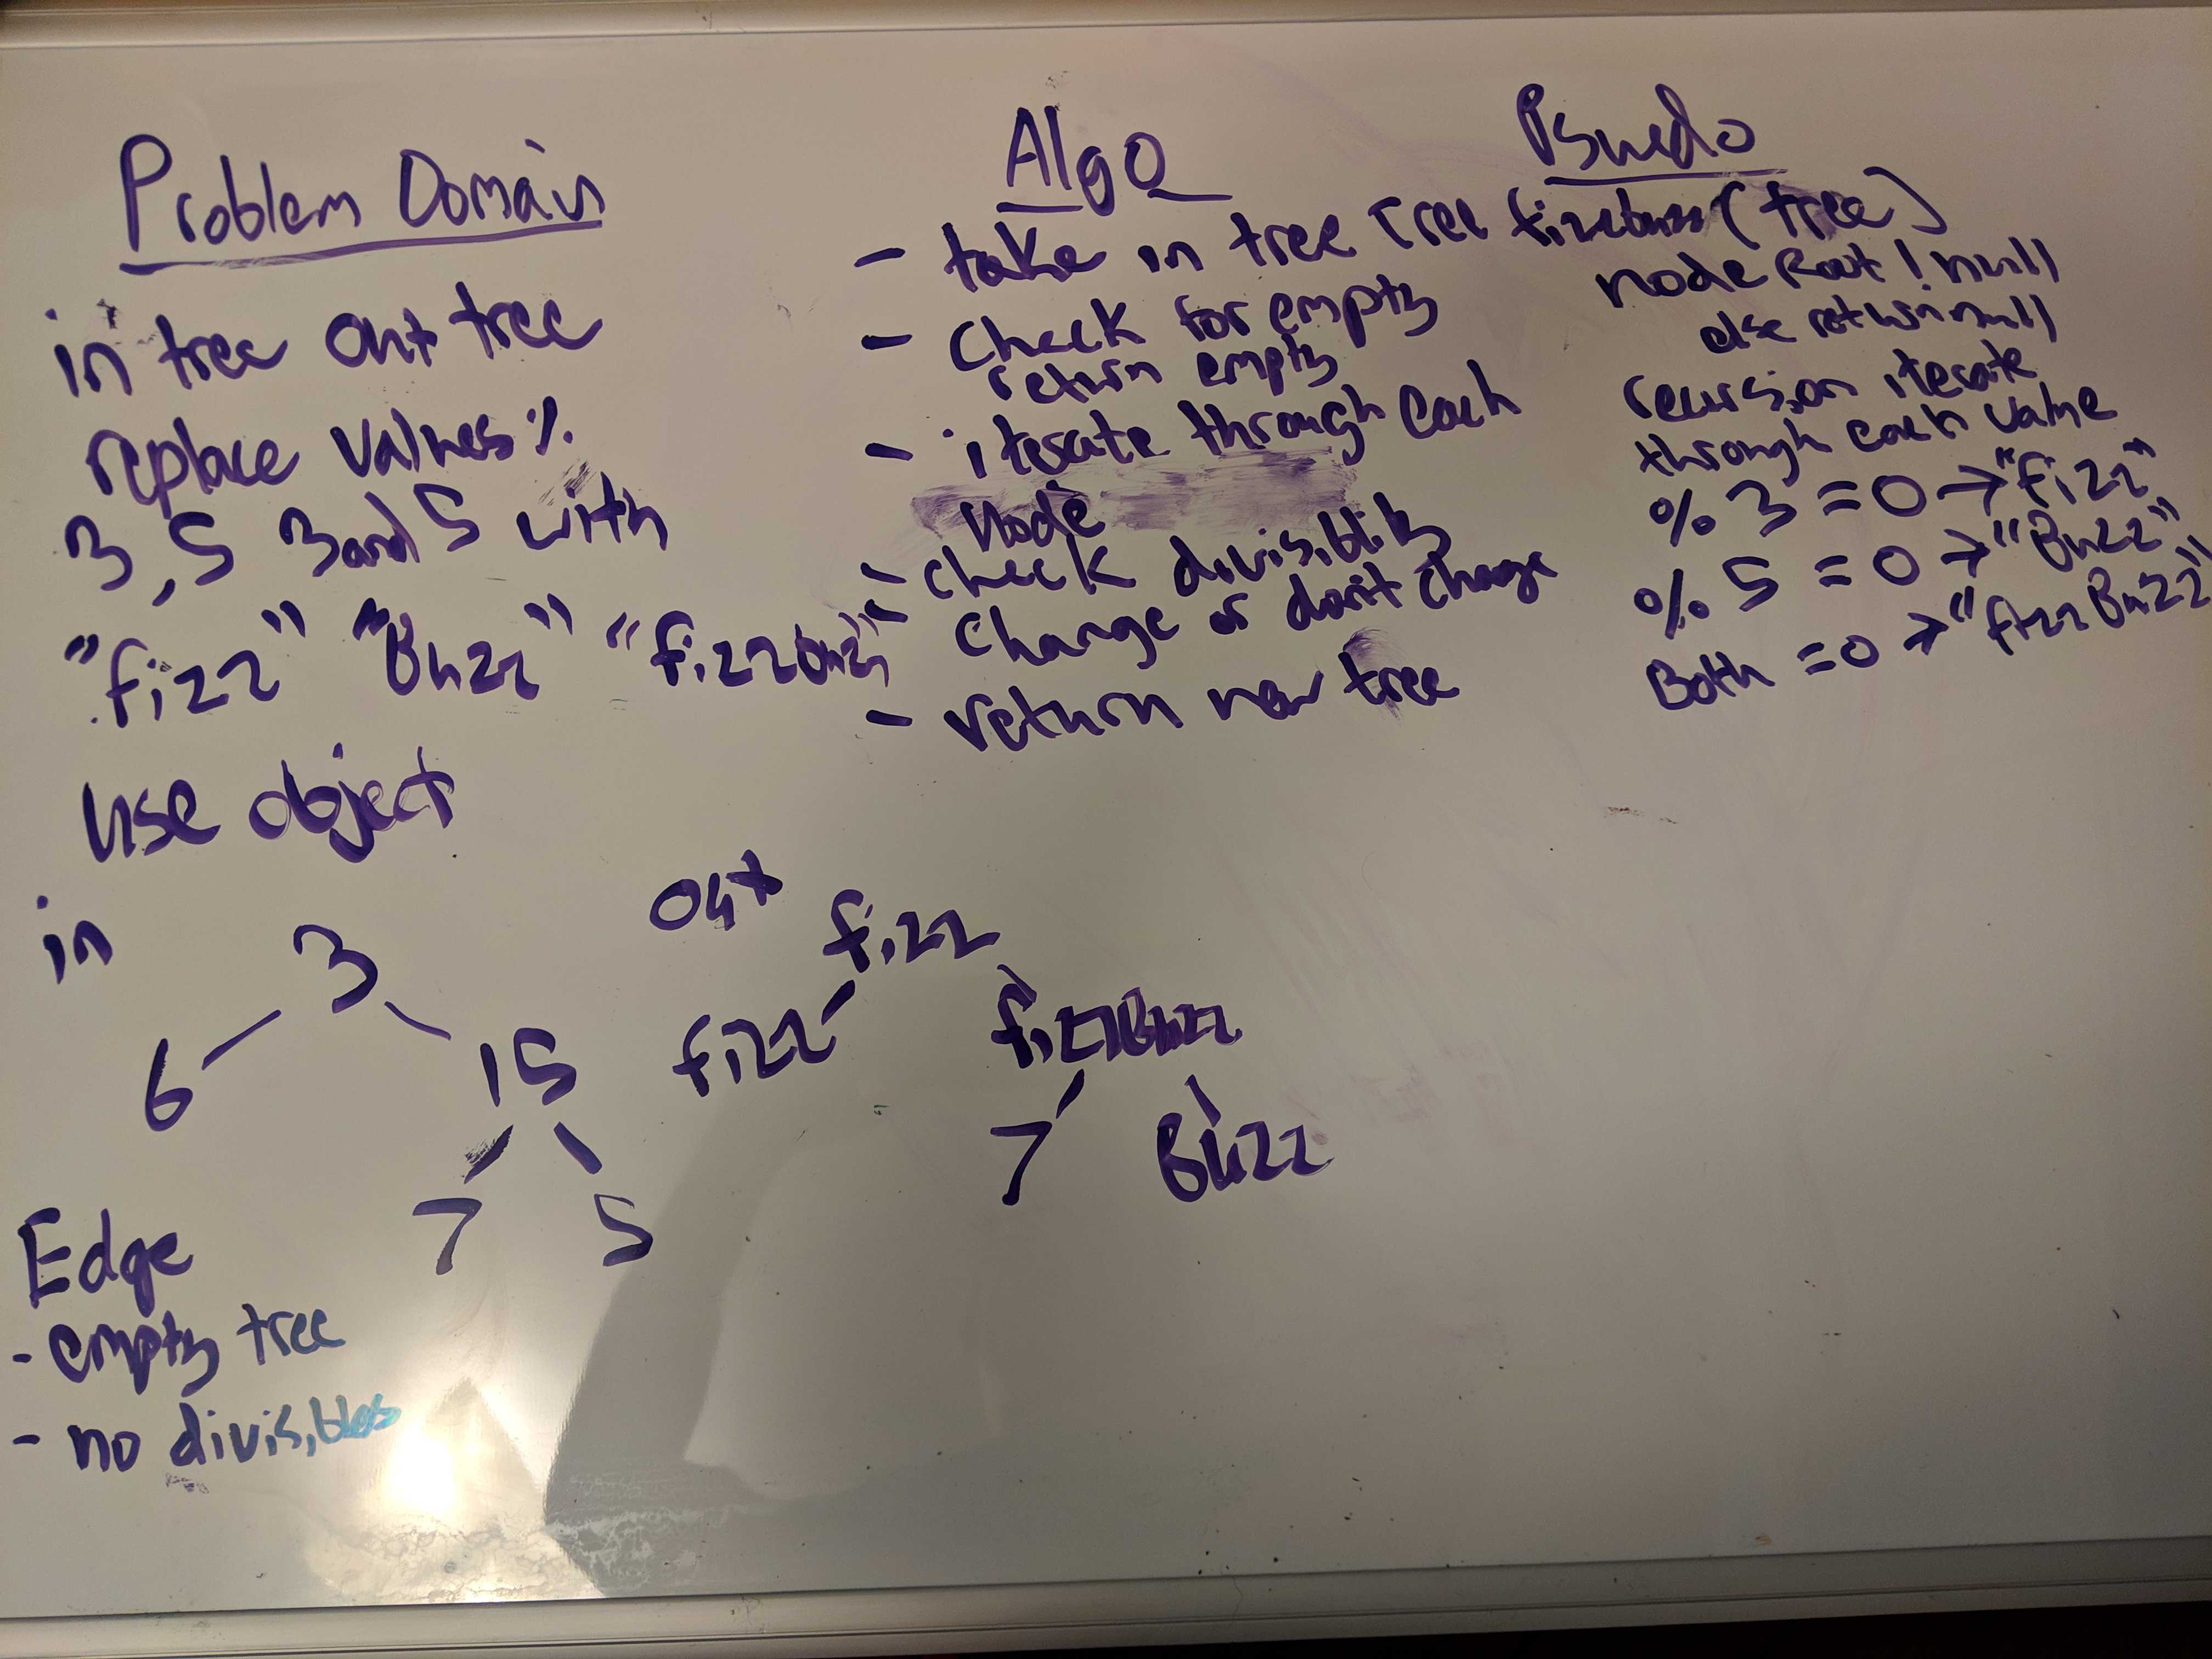 Problem Domain
in tree out tree
replace values %
3, 5 3 and 5 with
"fizz" "Buzz" "fizzbuzz"
use object
in
3
6 15
7 5
out
fizz
fizz fizzBuzz
7 Buzz
Edge
- empty tree
- no divisibles
Algo
- take in tree
- Check for empty
return empty
- iterate through each
Node
- check divisiblity
- Change or don't change
- return new tree
Psuedo
Tree fizzbuzz (tree)
node Root ! null
else return null
recursion iterate
through each value
% 3 = 0 → "fizz"
% 5 = 0 → "Buzz"
Both = 0 → "fizzBuzz"